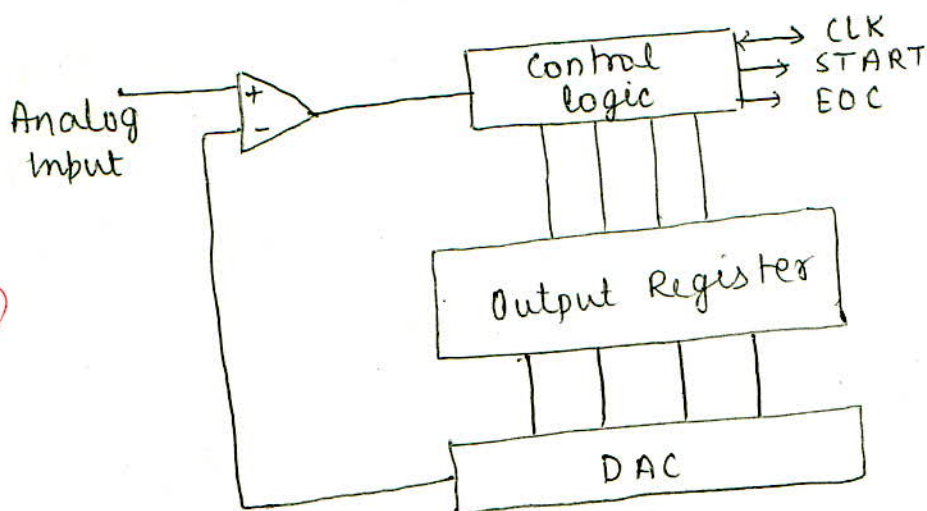 Analog
Input
+
-
Control
logic
CLK
START
EOC
Output Register
DAC